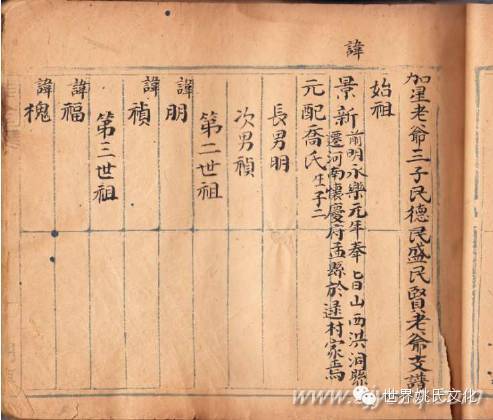 加星老爺三子民德民盛民賢老爺支譜
始祖
諱
景新 前明永樂元年奉 旨山西洪洞縣
遷河南懷慶府孟縣於逯村家焉
元配喬氏 生子二
長男明
次男禎
第二世祖
諱明
諱禎
第三世祖
諱福
諱槐
世界姚氏文化